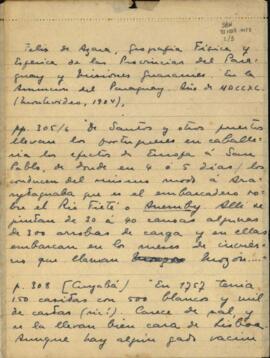 Felix de Azara, Geografia Física y
Esférica de las Provincias del Para-
guay y Misiones Guaraníes. En la
Asunción del Paraguay. Año de MDCCXC.
(Montevideo, 1904),
pp. 305/6 "De Santos y otros puertos
llevan los portugueses en caballe-
ría los efectos de Europa a Sam
Pablo, de donde en 4 ó 5 días los
conducen del mismo modo á Ara-
que es el embarcadero so-
bre el Rio Tieté o Anemby. Allí se
juntan de 30 á 40 canoas algunas
de 300 arrobas de carga y en ellas
embarcan en los meses de
que llaman
p. 308 [Cuyabá] "En 1757 tenía
150 casitas con 500 blancos y mil
de castas (sic). Carece de sal, y
se la llevan bien cara de Lisboa
Aunque hay algún gado vacun